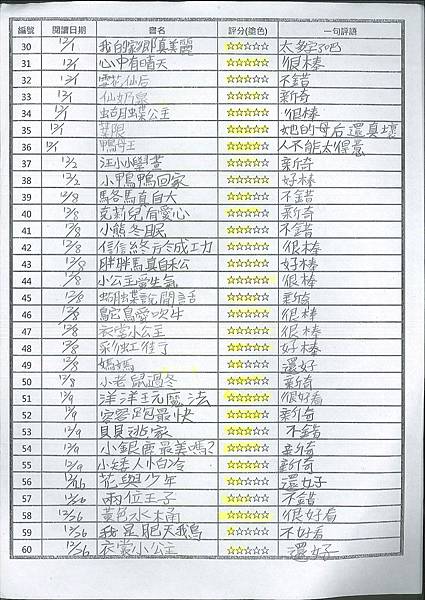 編號 閱讀日期 書名 評分(塗色) 一句評語
30 12/1 我的家鄉真美麗 ☆☆☆☆☆ 太多字了吧
31 12/1 心中有晴天 ☆☆☆☆☆ 很棒
32 12/1 雪花仙后 ☆☆☆☆☆ 不錯
33 12/1 仙奶泉 ☆☆☆☆☆ 新奇
34 12/1 蝴蝶公主 ☆☆☆☆☆ 很棒
35 12/1 葉限 ☆☆☆☆☆ 她的母后還真壞
36 12/1 鴨母王 ☆☆☆☆☆ 人不能太得意
37 12/2 汪小小學 ☆☆☆☆☆ 新奇
38 12/2 小鴨鴨回家 ☆☆☆☆☆ 好棒
39 12/8 馬各馬真自大 ☆☆☆☆☆ 不錯
40 12/8 克莉兒有愛心 ☆☆☆☆☆ 新奇
41 12/8 小熊冬眠 ☆☆☆☆☆ 不錯
42 12/8 信信終於成功 ☆☆☆☆☆ 很棒
43 12/8 胖胖馬真自私 ☆☆☆☆☆ 好棒
44 12/8 小公主愛生氣 ☆☆☆☆☆ 很棒
45 12/8 蝴蝶說閒話 ☆☆☆☆☆ 新奇
46 12/8 鴕鳥愛吹牛 ☆☆☆☆☆ 很棒
47 12/8 衣裳小公主 ☆☆☆☆☆ 很棒
48 12/8 彩虹 ☆☆☆☆☆ 好棒
49 12/8 媽媽 ☆☆☆☆☆ 還好
50 12/8 小老鼠過冬 ☆☆☆☆☆ 新奇
51 12/9 洋洋玩魔法 ☆☆☆☆☆ 很好看
52 12/9 客客跑最快 ☆☆☆☆☆ 新奇
53 12/9 貝貝逃家 ☆☆☆☆☆ 不錯
54 12/9 小銀鹿最美嗎? ☆☆☆☆☆ 新奇
55 12/9 小矮人怕冷 ☆☆☆☆☆ 新奇
56 12/16 花與少年 ☆☆☆☆☆ 還好
57 12/16 兩位王子 ☆☆☆☆☆ 不錯
58 12/26 黃色水桶 ☆☆☆☆☆ 很好看
59 12/26 我是肥天鵝 ☆☆☆☆☆ 不好看
60 12/26 衣裳小公主 ☆☆☆☆☆ 還好